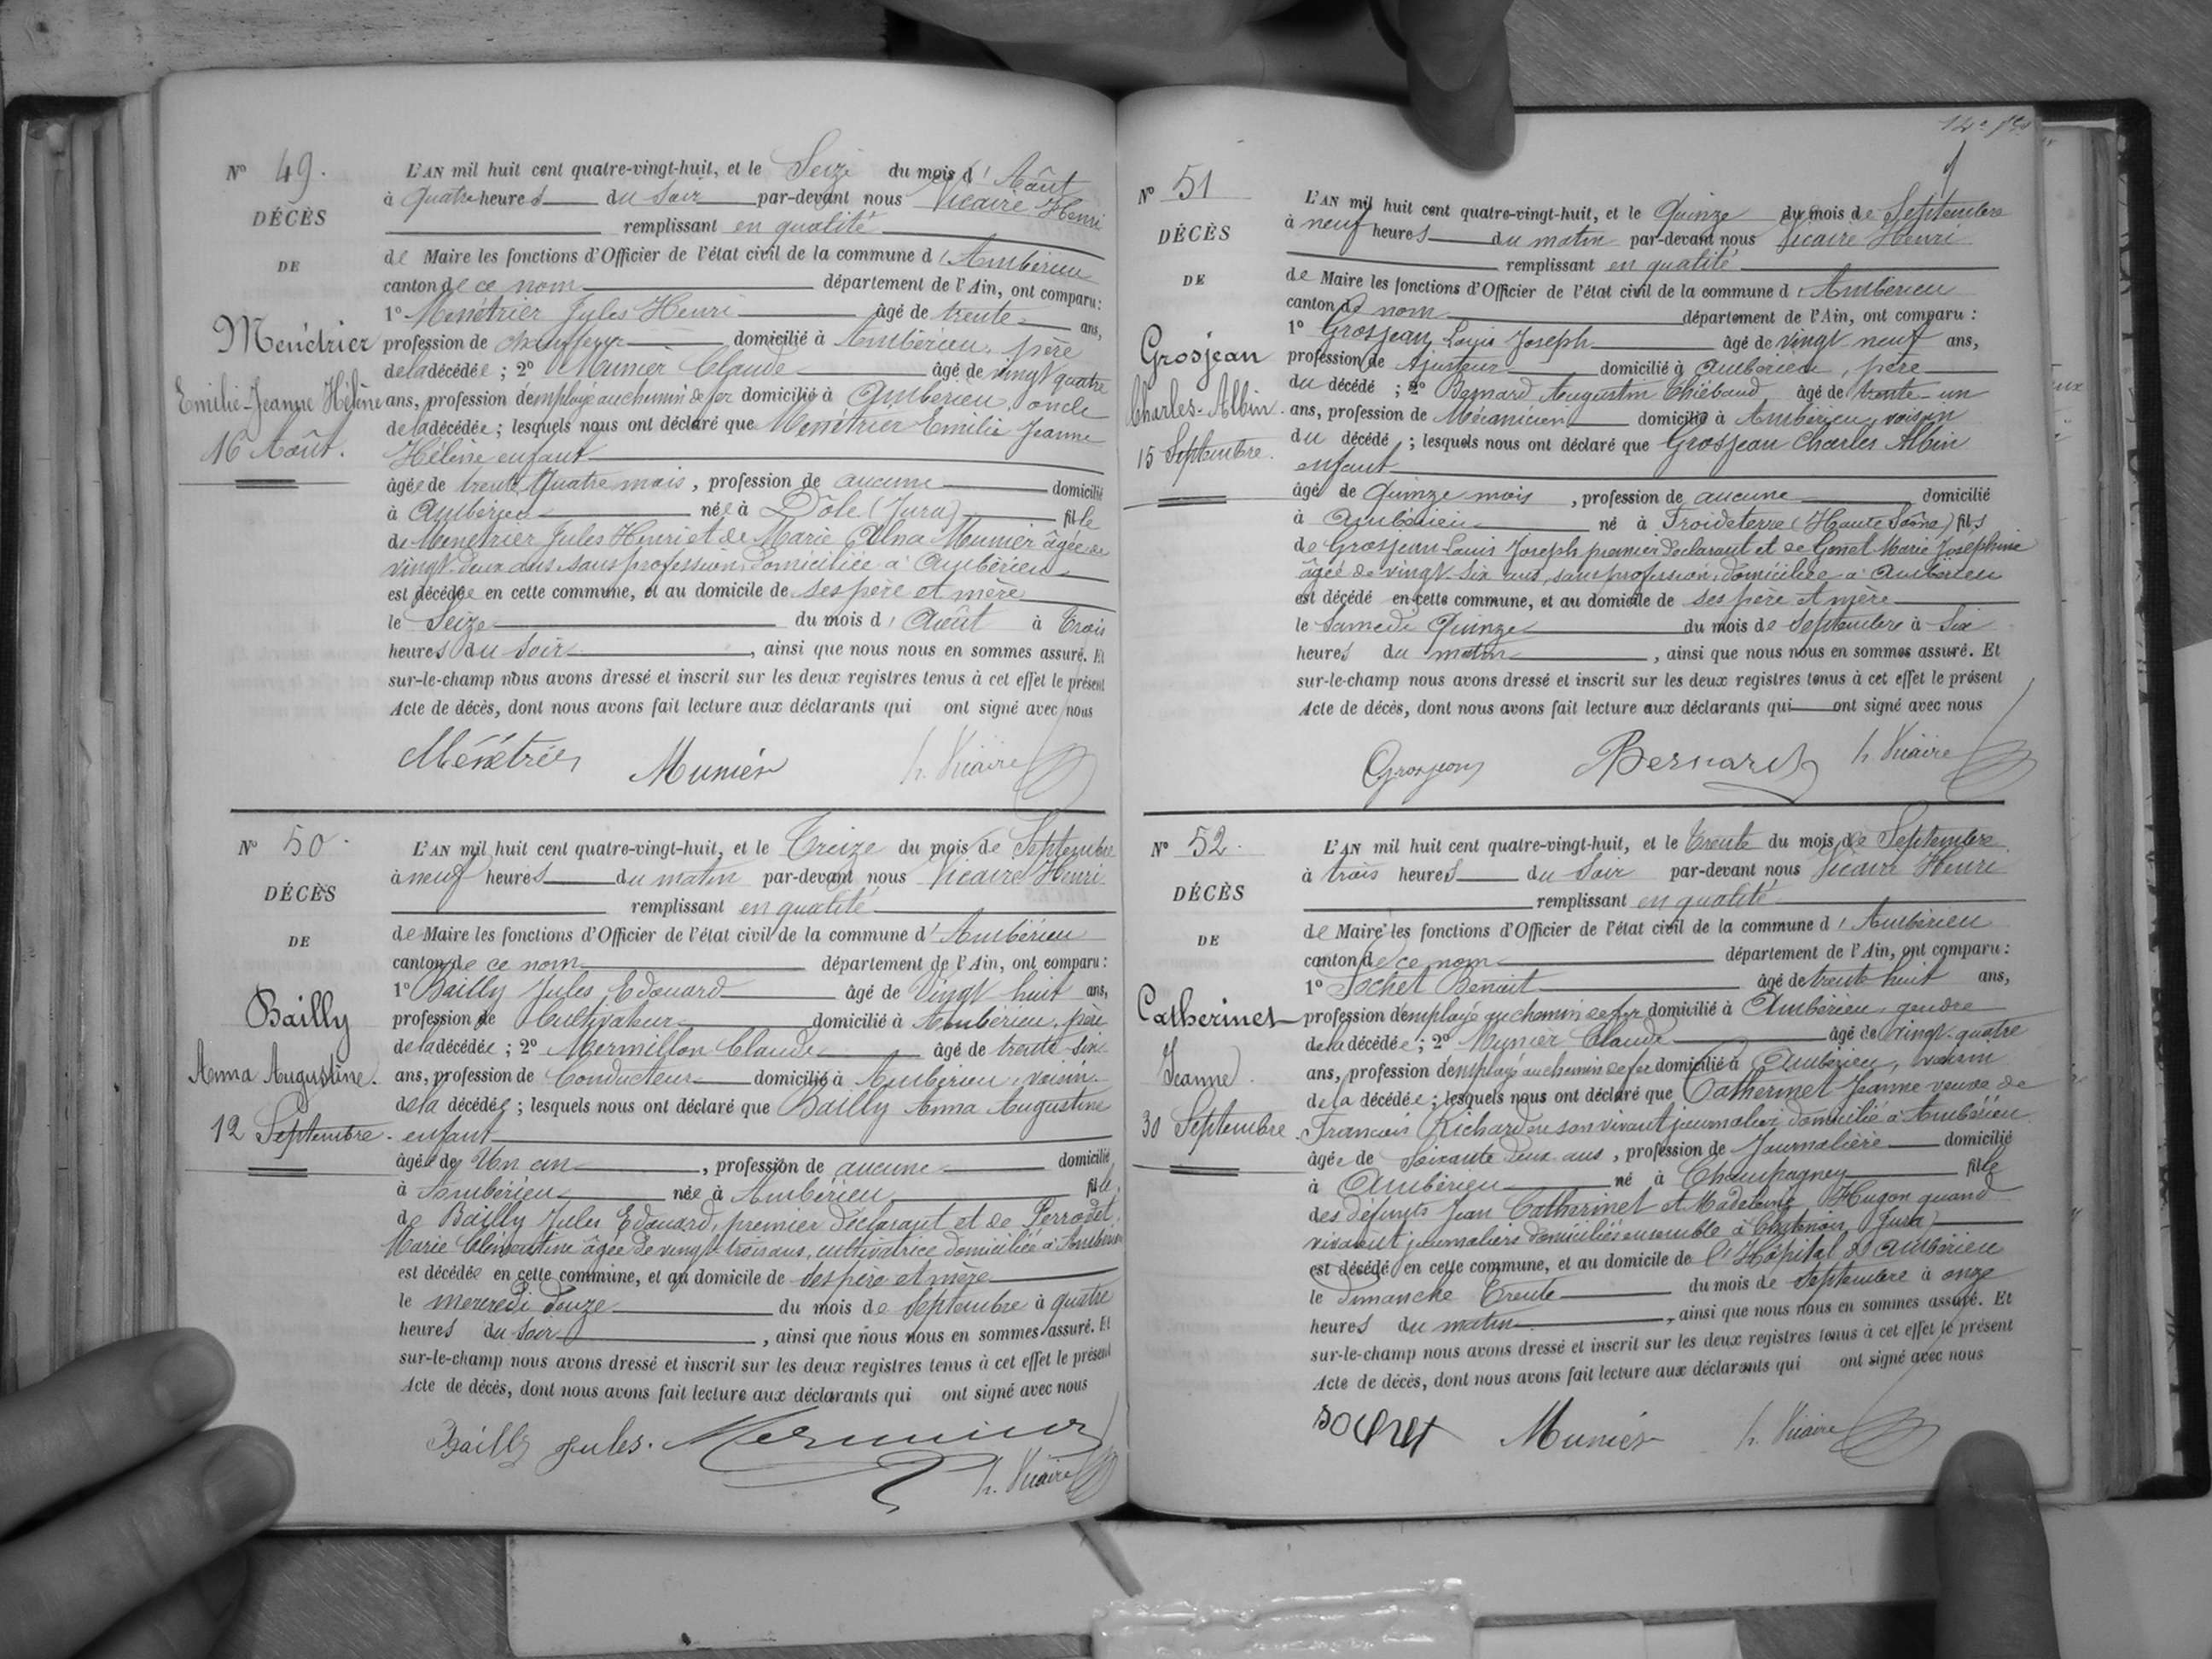 Nº 49.
DÉCÈS
DE
Menétrier
Emilie-Jeanne Hélène
16 Août.
L'AN mil huit cent quatre-vingt-huit, et le Seize du mois d'Août
à quatre heures du soir par-devant nous Vicaire Henri
remplissant en qualité
de Maire les fonctions d'Officier de l'état civil de la commune d'Ambérieu
canton de ce nom département de l'Ain, ont comparu :
1º Menétrier Jules Henri âgé de trente ans,
profession de chauffeur domicilié à Ambérieu, père
de la décédée ; 2º Munier Claude âgé de vingt quatre
ans, profession d'employé au chemin de fer domicilié à Ambérieu, oncle
de la décédée ; lesquels nous ont déclaré que Menétrier Emilie Jeanne
Hélène enfant
âgée de trente quatre mois, profession de aucune domicilié
à Ambérieu née à Dôle (Jura) fille
de Menétrier Jules Henri et de Marie Alna Munier âgée de
vingt-deux ans sans profession, domiciliée à Ambérieu
est décédée en cette commune, et au domicile de ses père et mère
le Seize du mois d'Août à trois
heures du soir, ainsi que nous nous en sommes assuré. Et
sur-le-champ nous avons dressé et inscrit sur les deux registres tenus à cet effet le présent
Acte de décès, dont nous avons fait lecture aux déclarants qui ont signé avec nous
Ménétrier Munier h. Vicaire
Nº 50.
DÉCÈS
DE
Bailly
Anna Augustine.
12 Septembre.
L'AN mil huit cent quatre-vingt-huit, et le Treize du mois de Septembre
à neuf heures du matin par-devant nous Vicaire Henri
remplissant en qualité
de Maire les fonctions d'Officier de l'état civil de la commune d'Ambérieu
canton de ce nom département de l'Ain, ont comparu :
1º Bailly Jules Edouard âgé de Vingt huit ans,
profession de Cultivateur domicilié à Ambérieu, père
de la décédée ; 2º Mermillon Claude âgé de trente-six
ans, profession de Conducteur domicilié à Ambérieu, voisin
de la décédée ; lesquels nous ont déclaré que Bailly Anna Augustine
enfant
âgée de Un an, profession de aucune domicilié
à Ambérieu née à Ambérieu fille
de Bailly Jules Edouard, premier déclarant et de Perrodet
Marie Clémentine âgée de vingt-trois ans, cultivatrice domiciliée à Ambérieu
est décédée en cette commune, et au domicile de ses père et mère
le mercredi douze du mois de Septembre à quatre
heures du soir, ainsi que nous nous en sommes assuré. Et
sur-le-champ nous avons dressé et inscrit sur les deux registres tenus à cet effet le présent
Acte de décès, dont nous avons fait lecture aux déclarants qui ont signé avec nous
Bailly Jules. h. Vicaire
Nº 51
DÉCÈS
DE
Grosjean
Charles-Albin.
15 Septembre.
L'AN mil huit cent quatre-vingt-huit, et le Quinze du mois de Septembre
à neuf heures du matin par-devant nous Vicaire Henri
remplissant en qualité
de Maire les fonctions d'Officier de l'état civil de la commune d'Ambérieu
canton de nom département de l'Ain, ont comparu :
1º Grosjean Louis Joseph âgé de vingt-neuf ans,
profession de Ajusteur domicilié à Ambérieu, père
du décédé ; 2º Bernard Augustin Thiébaud âgé de trente-un
ans, profession de Mécanicien domicilié à Ambérieu, voisin
du décédé ; lesquels nous ont déclaré que Grosjean Charles Albin
enfant
âgé de Quinze mois, profession de aucune domicilié
à Ambérieu né à Froideterre (Haute Saône) fils
de Grosjean Louis Joseph premier déclarant et de Gonet Marie Joséphine
âgée de vingt-six ans, sans profession, domiciliée à Ambérieu
est décédé en cette commune, et au domicile de ses père et mère
le Samedi Quinze du mois de Septembre à Six
heures du matin, ainsi que nous nous en sommes assuré. Et
sur-le-champ nous avons dressé et inscrit sur les deux registres tenus à cet effet le présent
Acte de décès, dont nous avons fait lecture aux déclarants qui ont signé avec nous
Grosjean Bernard h. Vicaire
Nº 52.
DÉCÈS
DE
Catherinet
Jeanne.
30 Septembre.
L'AN mil huit cent quatre-vingt-huit, et le Trente du mois de Septembre
à trois heures du soir par-devant nous Vicaire Henri
remplissant en qualité
de Maire les fonctions d'Officier de l'état civil de la commune d'Ambérieu
canton de ce nom département de l'Ain, ont comparu :
1º Sochet Benoit âgé de trente huit ans,
profession d'employé au chemin de fer domicilié à Ambérieu, gendre
de la décédée ; 2º Munier Claude âgé de vingt-quatre
ans, profession d'employé au chemin de fer domicilié à Ambérieu, voisin
de la décédée ; lesquels nous ont déclaré que Catherinet Jeanne veuve de
Francois Richard en son vivant journalier domicilié à Ambérieu
âgée de Soixante deux ans, profession de Journalière domicilié
à Ambérieu né à Champagney fille
des défunts Jean Catherinet et Madeleine Hugon quand
vivaient journaliers domiciliés ensemble à (Jura)
est décédé en cette commune, et au domicile de l'Hôpital d'Ambérieu
le dimanche Trente du mois de Septembre à onze
heures du matin, ainsi que nous nous en sommes assuré. Et
sur-le-champ nous avons dressé et inscrit sur les deux registres tenus à cet effet le présent
Acte de décès, dont nous avons fait lecture aux déclarants qui ont signé avec nous
Sochet Munier h. Vicaire